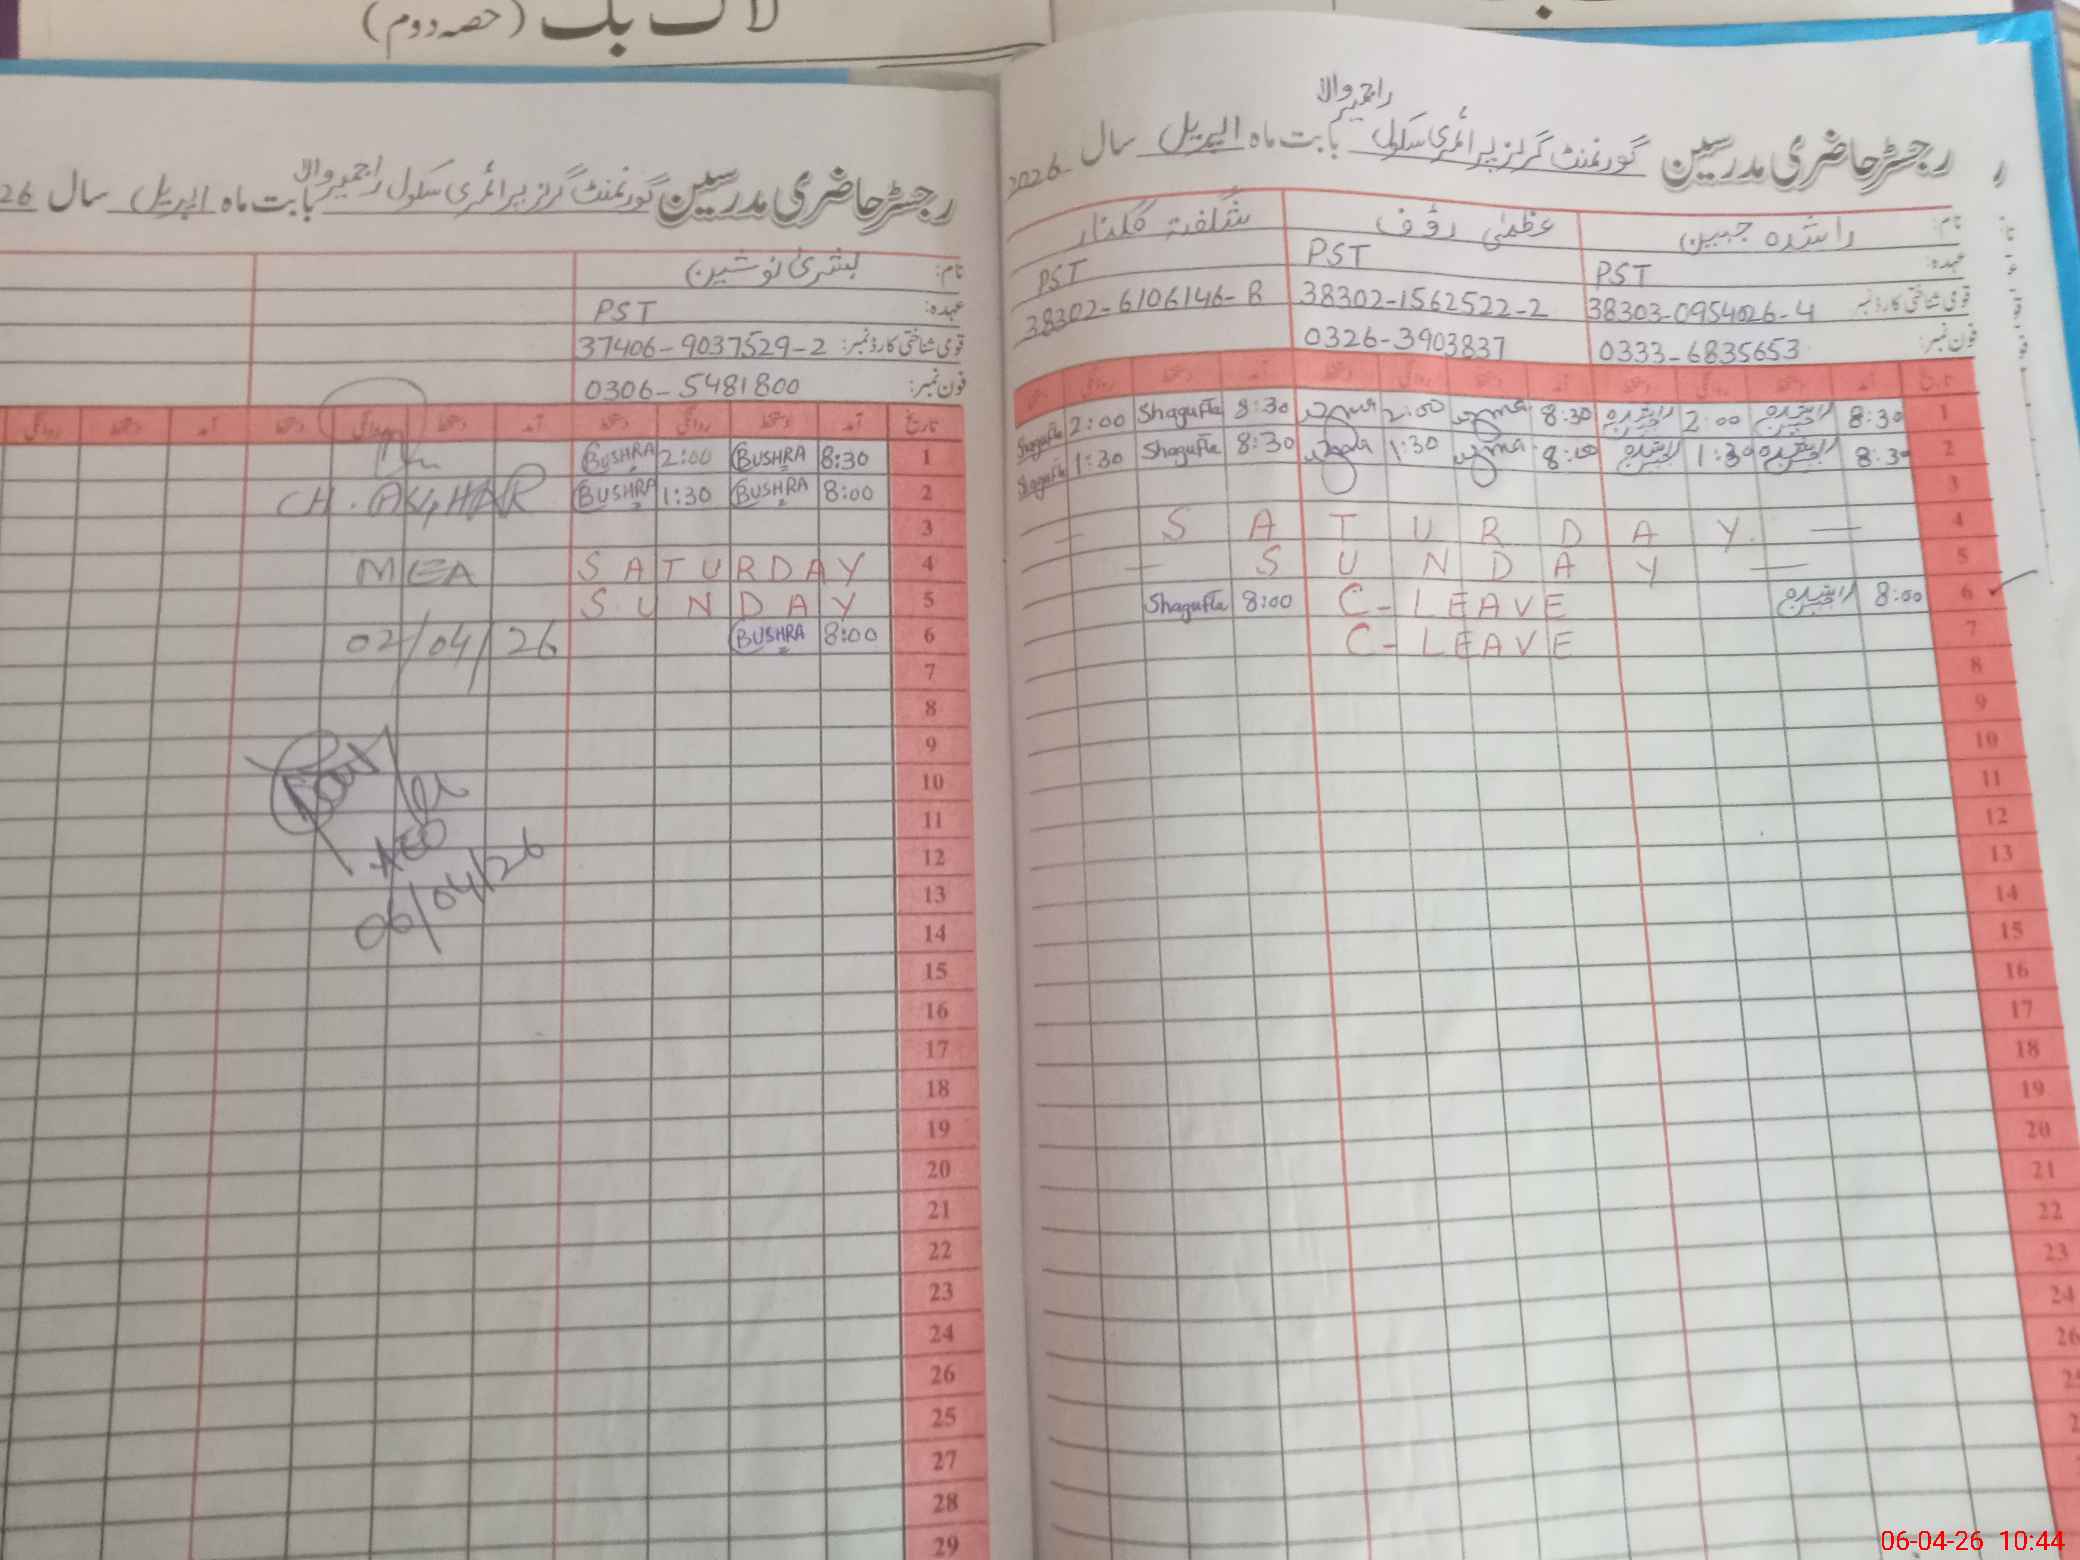 لاگ بک (حصہ دوم)
راجیر والا
رجسٹر حاضری مدرسین گورنمنٹ گرلز پرائمری سکول بابت ماہ اپریل سال 2026
نام: راشدہ جبین عظمیٰ رؤف شگفتہ گلنار
عہدہ: PST PST PST
قومی شناختی کارڈ نمبر 38303-0954026-4 38302-1562522-2 38302-6106146-8
فون نمبر: 0333-6835653 0326-3903837
تاریخ آمد دستخط روانگی دستخط آمد دستخط روانگی دستخط آمد دستخط روانگی
1 8:30 راشدہ جبین 2:00 راشدہ جبین 8:30 uzma 2:00 uzma 8:30 Shagufta 2:00 Shagufta
2 8:30 راشدہ جبین 1:30 راشدہ جبین 8:00 uzma 1:30 uzma 8:30 Shagufta 1:30 Shagufta
3
4 — S A T U R D A Y. —
5 — S U N D A Y —
6 8:00 راشدہ جبین C-LEAVE 8:00 Shagufta
7 C-LEAVE
8
9
10
11
12
13
14
15
16
17
18
19
20
21
22
23
24
26
رجسٹر حاضری مدرسین گورنمنٹ گرلز پرائمری سکول راجیر والا بابت ماہ اپریل سال 26
نام: بشریٰ نوشین
عہدہ: PST
قومی شناختی کارڈ نمبر: 37406-9037529-2
فون نمبر: 0306-5481800
تاریخ آمد دستخط روانگی دستخط آمد دستخط روانگی دستخط آمد دستخط روانگی
1 8:30 BUSHRA 2:00 BUSHRA
2 8:00 BUSHRA 1:30 BUSHRA CH. ASGHAR
3
4 SATURDAY MEA
5 SUNDAY
6 8:00 BUSHRA 02/04/26
7
8
9
10
11
12 AEO
13 06/04/26
14
15
16
17
18
19
20
21
22
23
24
26
25
27
28
29
06-04-26 10:44